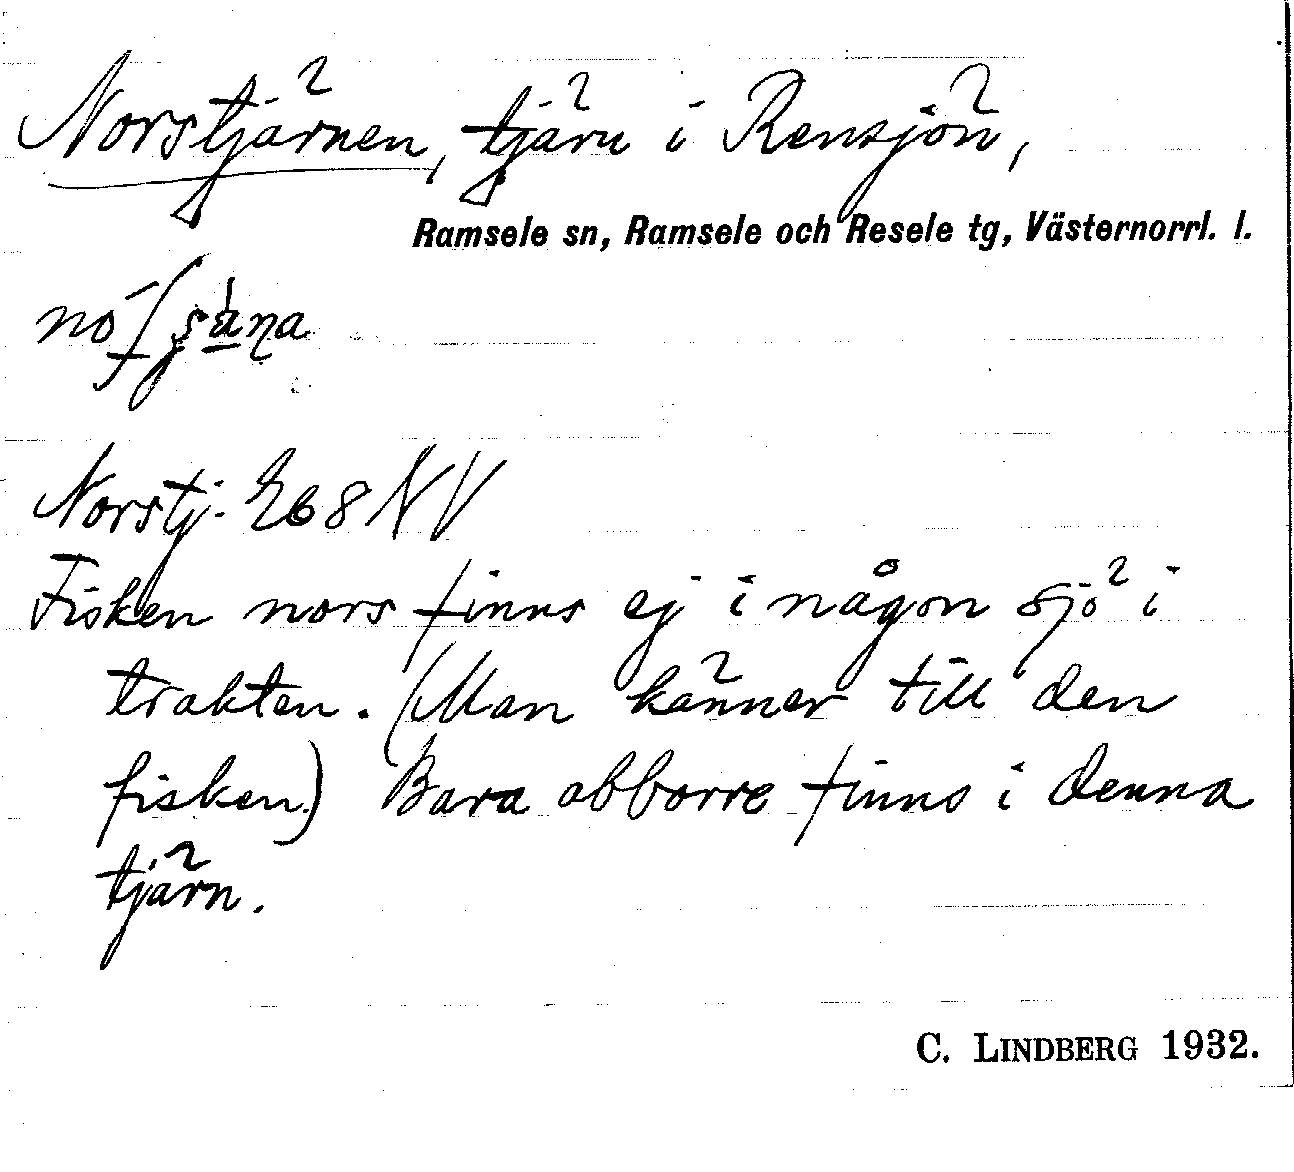 Norstjärnen, tjärn i Rensjön,
Ramsele sn, Ramsele och Resele tg, Västernorrl. l.
Norstj. 268 NV
Fisken nors finns ej i någon sjö i
trakten. (Man känner till den
fisken) Bara abborre finns i denna
tjärn.
C. LINDBERG 1932.